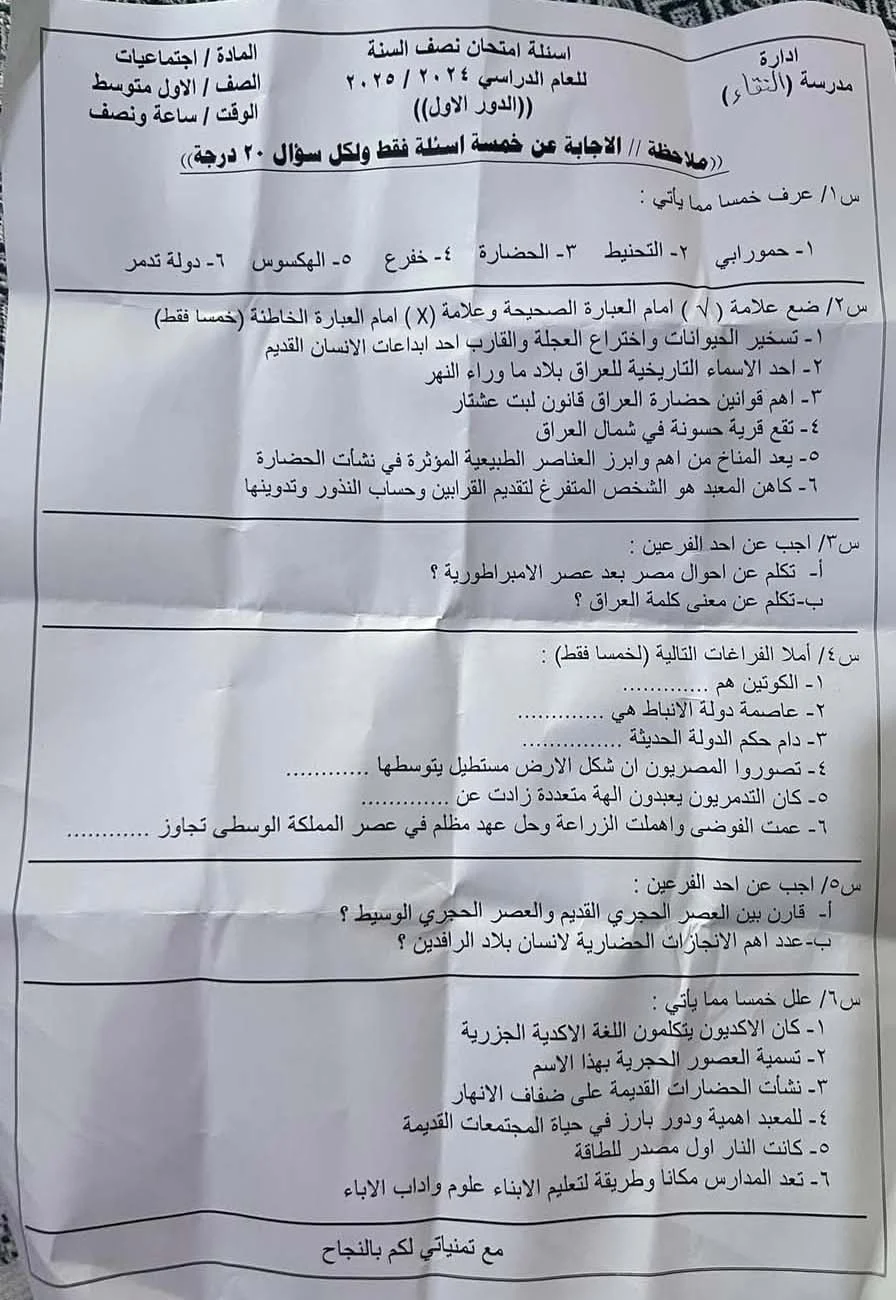 ادارة
مدرسة (
اسئلة امتحان نصف السنة
للعام الدراسي ٢٠٢٤ / ٢٠٢٥
((الدور الاول))
المادة / اجتماعيات
الصف / الاول متوسط
الوقت / ساعة ونصف
((ملاحظة // الاجابة عن خمسة اسئلة فقط ولكل سؤال ٢٠ درجة))
س١/ عرف خمسا مما يأتي :
١- حمورابي ٢- التحنيط ٣- الحضارة ٤- خفرع ٥- الهكسوس ٦- دولة تدمر
س٢/ ضع علامة (√) امام العبارة الصحيحة وعلامة (X) امام العبارة الخاطئة (خمسا فقط)
١- تسخير الحيوانات واختراع العجلة والقارب احد ابداعات الانسان القديم
٢- احد الاسماء التاريخية للعراق بلاد ما وراء النهر
٣- اهم قوانين حضارة العراق قانون لبت عشتار
٤- تقع قرية حسونة في شمال العراق
٥- يعد المناخ من اهم وابرز العناصر الطبيعية المؤثرة في نشأت الحضارة
٦- كاهن المعبد هو الشخص المتفرغ لتقديم القرابين وحساب النذور وتدوينها
س٣/ اجب عن احد الفرعين :
أ- تكلم عن احوال مصر بعد عصر الامبراطورية ؟
ب-تكلم عن معنى كلمة العراق ؟
س٤/ أملا الفراغات التالية (لخمسا فقط) :
١- الكوتين هم .............
٢- عاصمة دولة الانباط هي .............
٣- دام حكم الدولة الحديثة ...............
٤- تصوروا المصريون ان شكل الارض مستطيل يتوسطها ............
٥- كان التدمريون يعبدون الهة متعددة زادت عن .............
٦- عمت الفوضى واهملت الزراعة وحل عهد مظلم في عصر المملكة الوسطى تجاوز ............
س٥/ اجب عن احد الفرعين :
أ- قارن بين العصر الحجري القديم والعصر الحجري الوسيط ؟
ب-عدد اهم الانجازات الحضارية لانسان بلاد الرافدين ؟
س٦/ علل خمسا مما يأتي :
١- كان الاكديون يتكلمون اللغة الاكدية الجزرية
٢- تسمية العصور الحجرية بهذا الاسم
٣- نشأت الحضارات القديمة على ضفاف الانهار
٤- للمعبد اهمية ودور بارز في حياة المجتمعات القديمة
٥- كانت النار اول مصدر للطاقة
٦- تعد المدارس مكانا وطريقة لتعليم الابناء علوم واداب الاباء
مع تمنياتي لكم بالنجاح